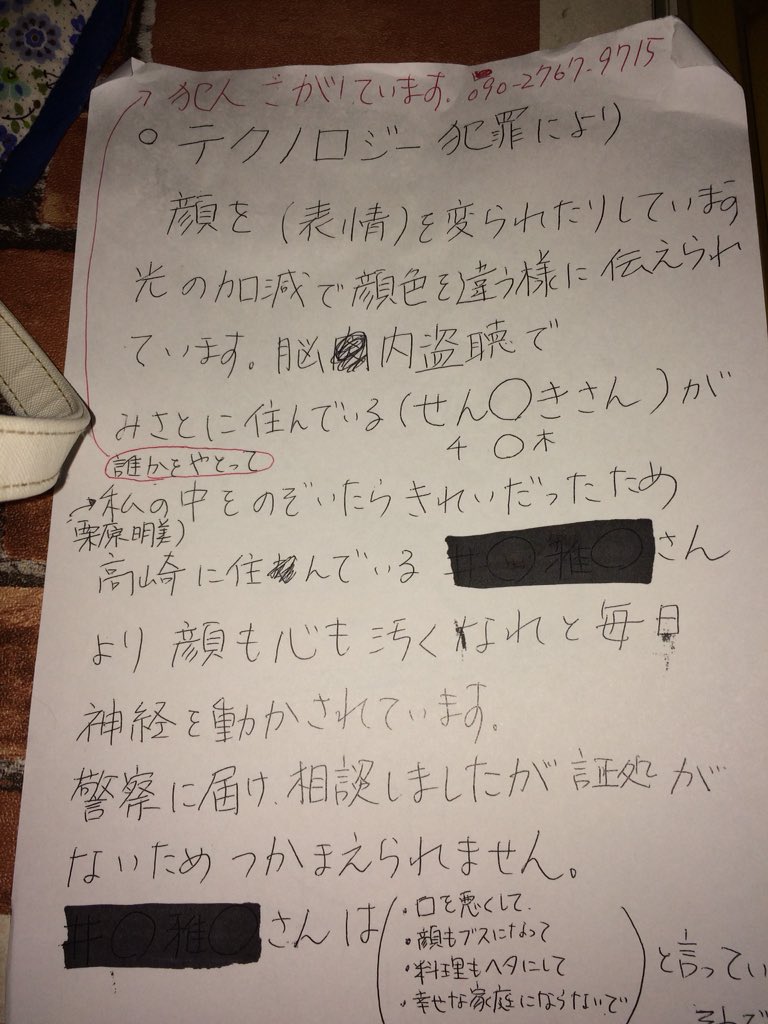 犯人さがしています。090-2767-9715
○テクノロジー犯罪により
顔を(表情)を変られたりしています
光の加減で顔色を違う様に伝えられ
ています。脳内盗聴で
みさとに住んでいる(せん○きさん)が
千○木
誰かをやとって
私の中をのぞいたらきれいだったため
栗原明美)
高崎に住んでいる 井○雅○さん
より顔も心も汚くなれと毎日
神経を動かされています。
警察に届け、相談しましたが証処が
ないためつかまえられません。
井○雅○さんは
・口を悪くして
・顔もブスになって
・料理もヘタにして
・幸せな家庭にならないで
と言ってい